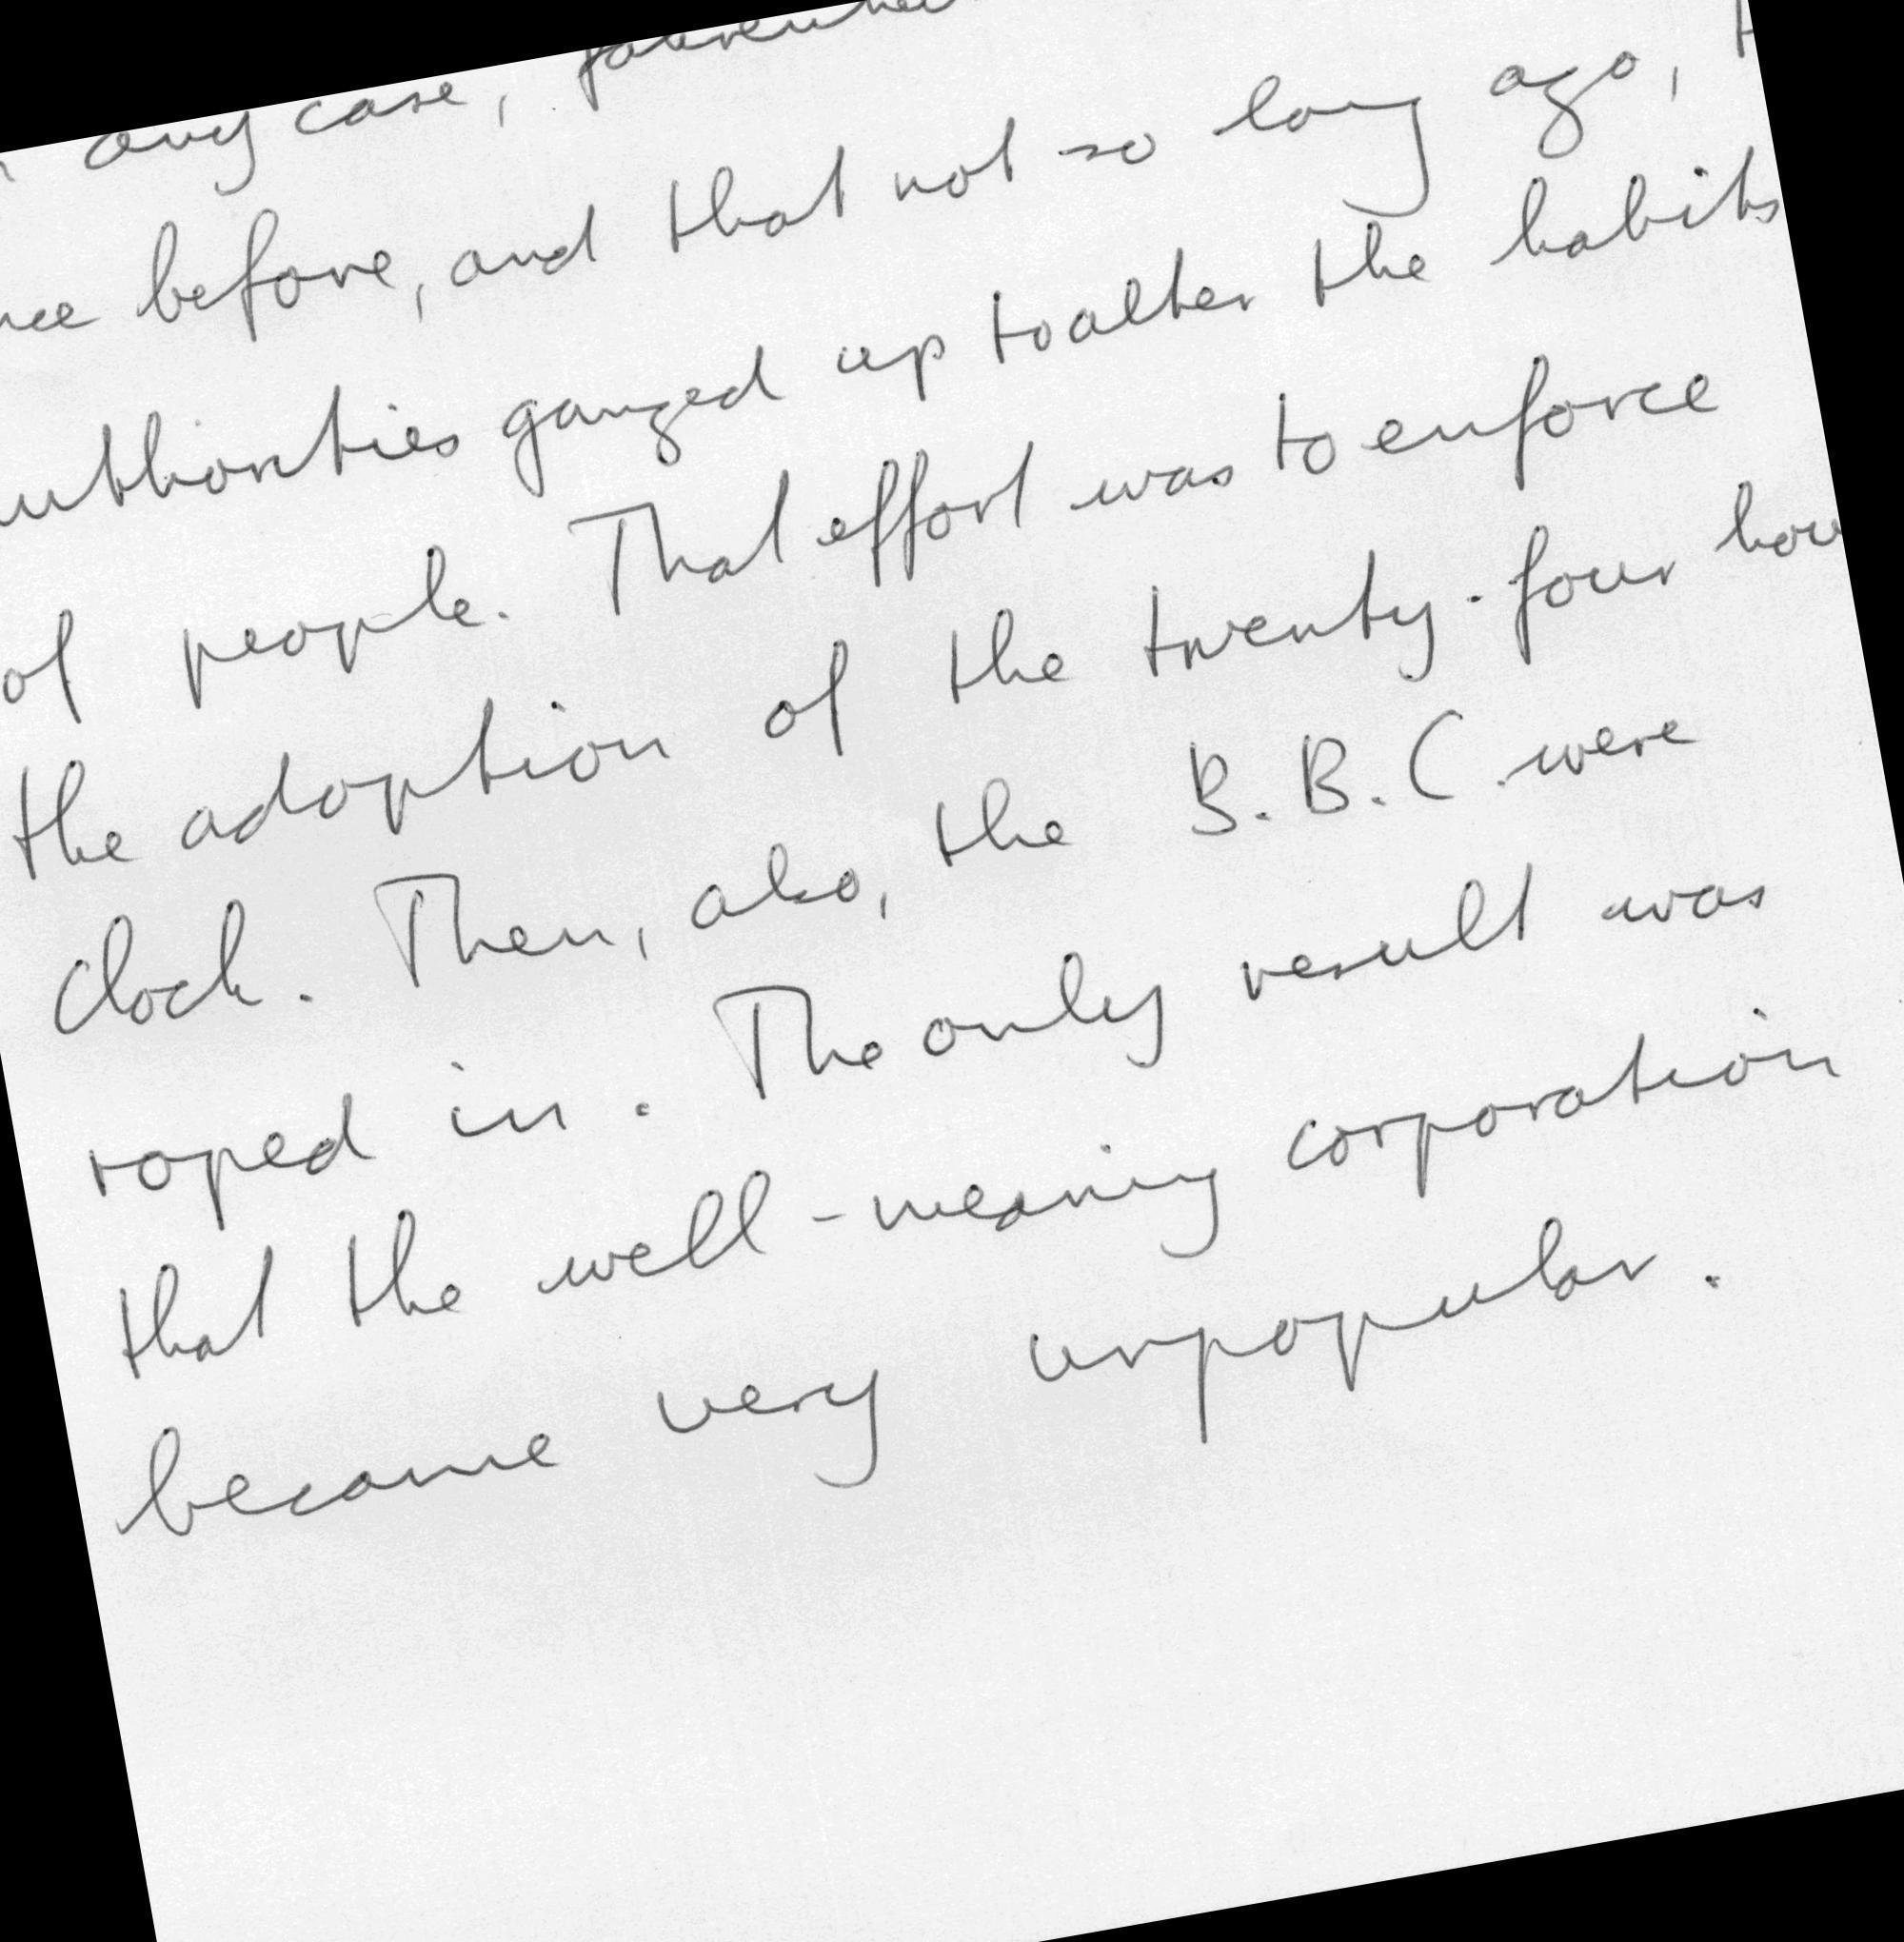 any case,
before, and that not so long ago,
ganged up to alter the habits
of people. That effort was to enforce
the adoption of the twenty-four
clock. Then, also, the B.B.C. were
roped in. The only result was
that the well-meaning corporation
became very unpopular.